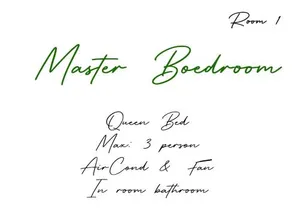 Room 1
Master Boedroom
Queen Bed
Max: 3 person
AirCond & Fan
In room bathroom